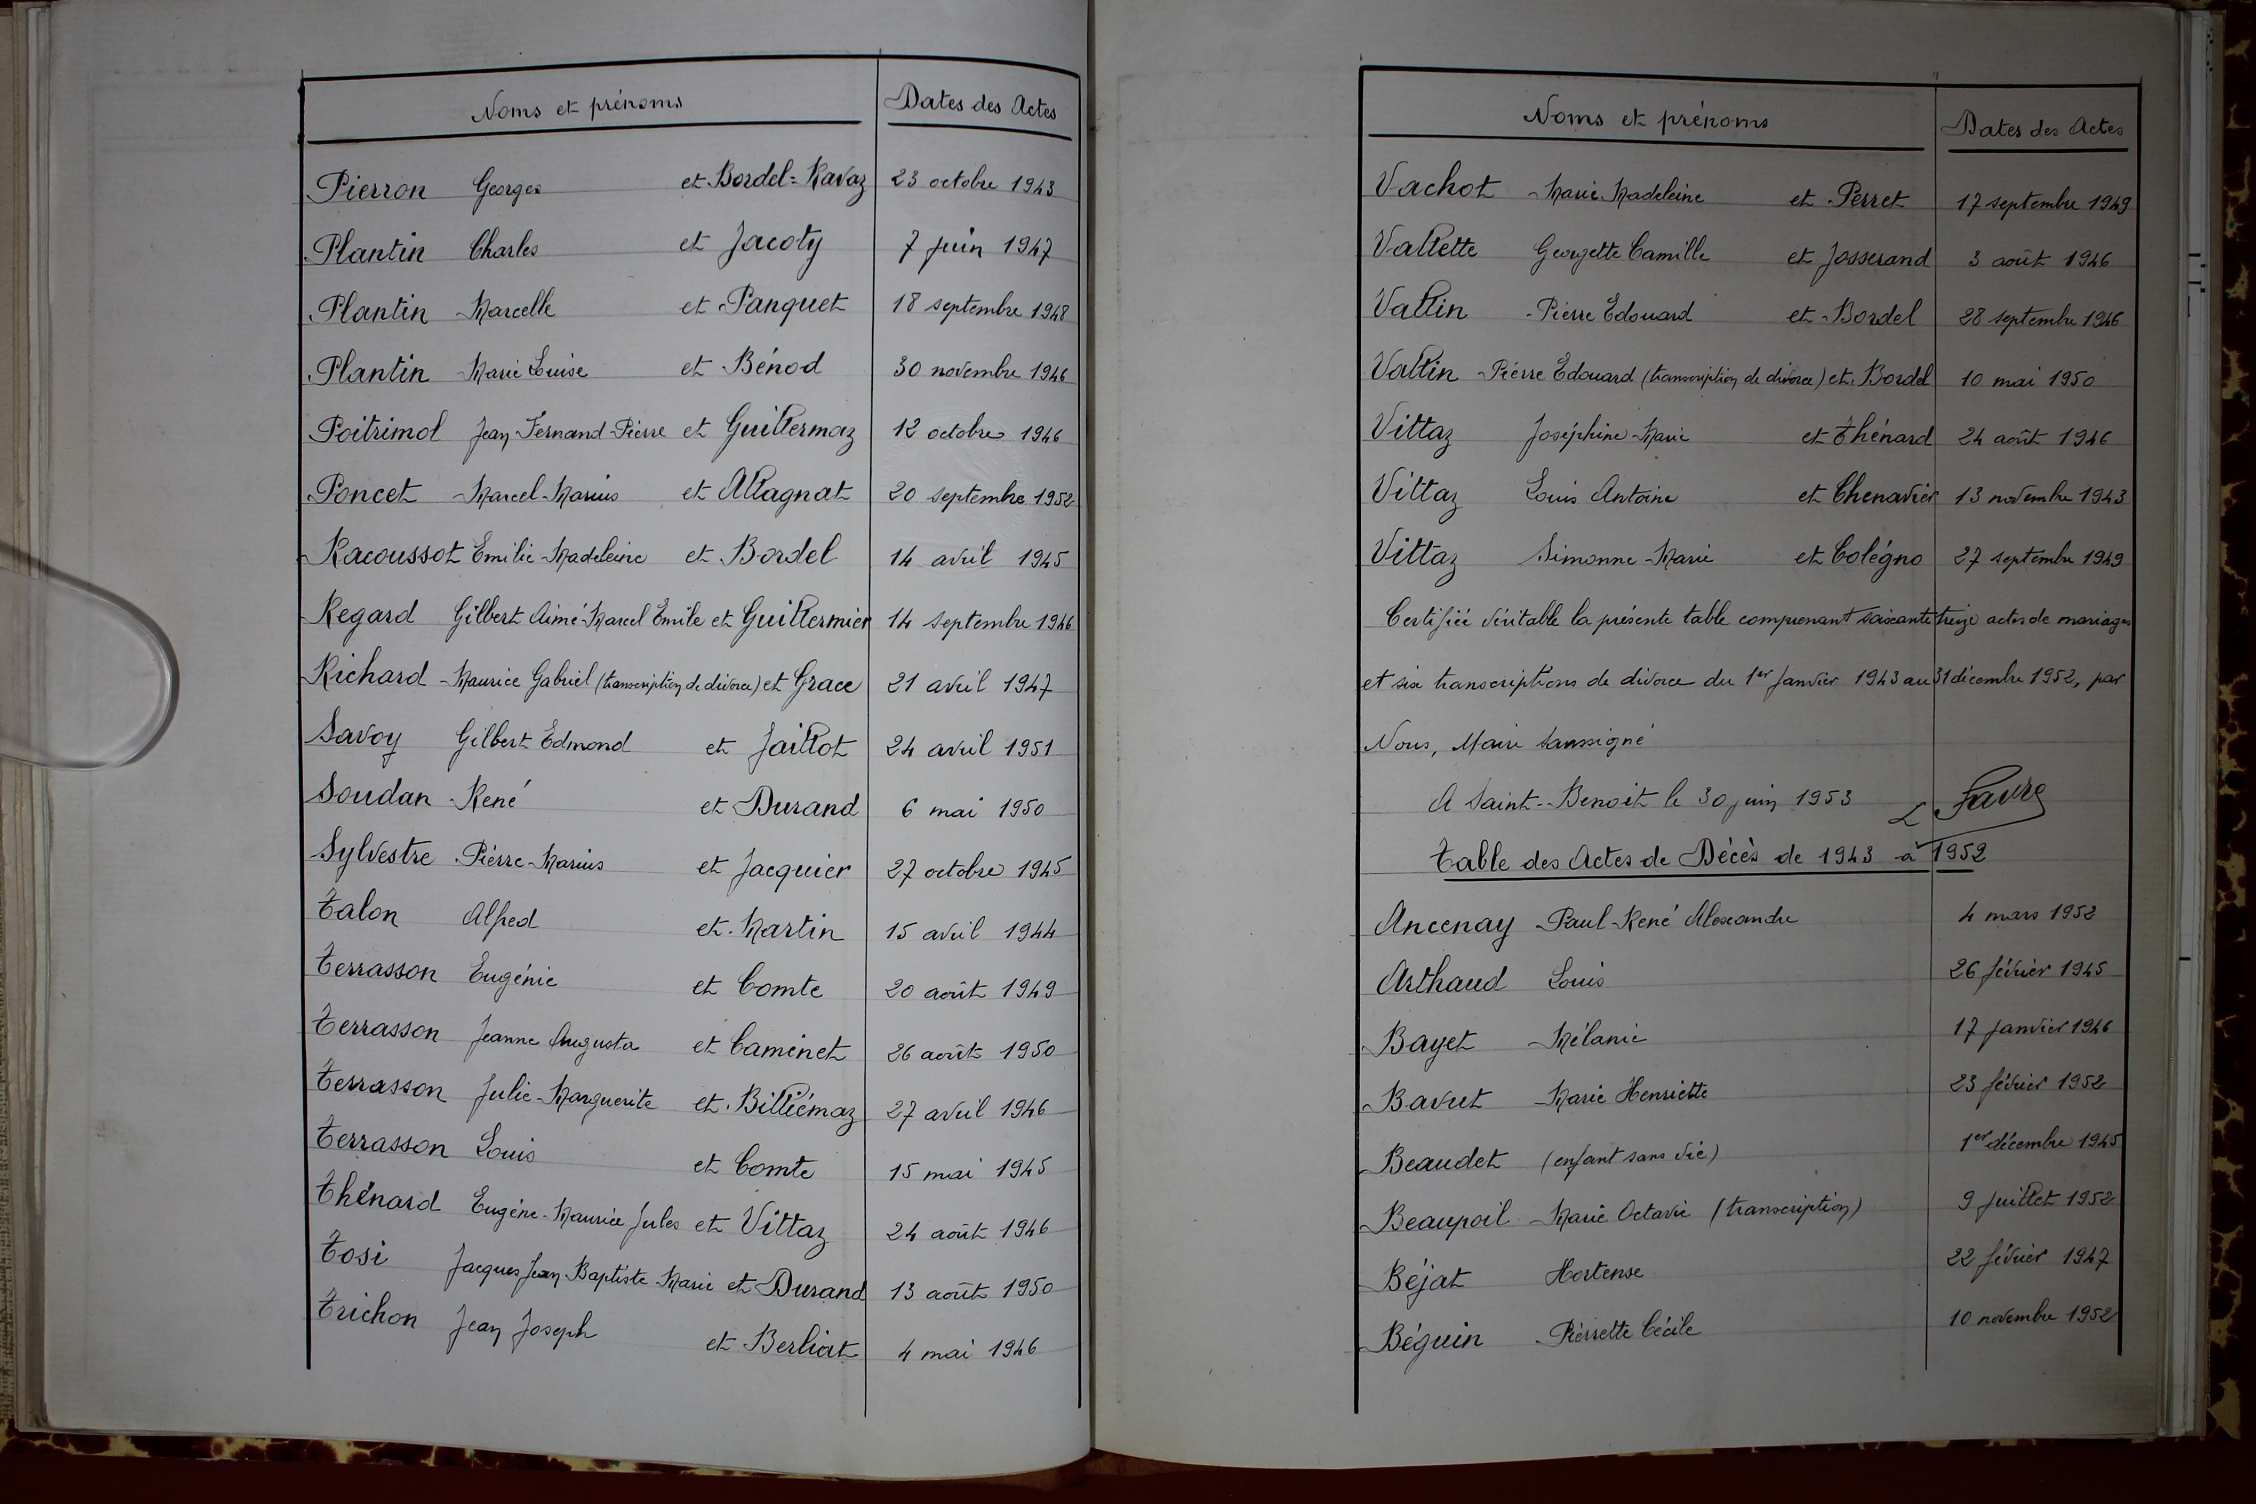 Noms et prénoms Dates des Actes
Pierron Georges et Bordel=Ravaz 23 octobre 1943
Plantin Charles et Jacoty 7 Juin 1947
Plantin Marcelle et Panquet 18 septembre 1948
Plantin Marie Louise et Bénod 30 novembre 1946
Poitrimol Jean Fernand Pierre et Guillermaz 12 octobre 1946
Poncet Marcel Marius et Allagnat 20 septembre 1952
Racoussot Emilie Madeleine et Bordel 14 avril 1945
Regard Gilbert Aimé Marcel Emile et Guillermier 14 septembre 1946
Richard Maurice Gabriel (transcription de divorce) et Grace 21 avril 1947
Savoy Gilbert Edmond et Jaillot 24 avril 1951
Soudan René et Durand 6 mai 1950
Sylvestre Pierre Marius et Jacquier 27 octobre 1945
Talon Alfred et Martin 15 avril 1944
Terrasson Eugénie et Comte 20 août 1949
Terrasson Jeanne Augusta et Caminet 26 août 1950
Terrasson Julie Marguerite et Billiémaz 27 avril 1946
Terrasson Louis et Comte 15 mai 1945
Thénard Eugène Maurice Jules et Vittaz 24 août 1946
Tosi Jacques Jean Baptiste Marie et Durand 13 août 1950
Trichon Jean Joseph et Berliat 4 mai 1946
Noms et prénoms Dates des Actes
Vachot Marie Madeleine et Perret 17 septembre 1949
Vallette Georgette Camille et Josserand 3 août 1946
Vallin Pierre Edouard et Bordel 28 septembre 1946
Vallin Pierre Edouard (transcription de divorce) et Bordel 10 mai 1950
Vittaz Joséphine Marie et Thénard 24 août 1946
Vittaz Louis Antoine et Chenavier 13 novembre 1943
Vittaz Simonne Marie et Colégno 27 septembre 1949
Certifiée véritable la présente table comprenant soixante treize actes de mariages
et six transcriptions de divorce du 1er Janvier 1943 au 31 décembre 1952, par
Nous, Maire soussigné
A Saint-Benoit le 30 juin 1953 L Favre
Table des Actes de Décès de 1943 à 1952
Ancenay Paul René Alexandre 4 mars 1952
Arthaud Louis 26 février 1945
Bayet Mélanie 17 janvier 1946
Bavut Marie Henriette 23 février 1952
Beaudet (enfant sans vie) 1er décembre 1945
Beaupoil Marie Octavie (transcription) 9 Juillet 1952
Béjat Hortense 22 février 1947
Béguin Pierrette Cécile 10 novembre 1952